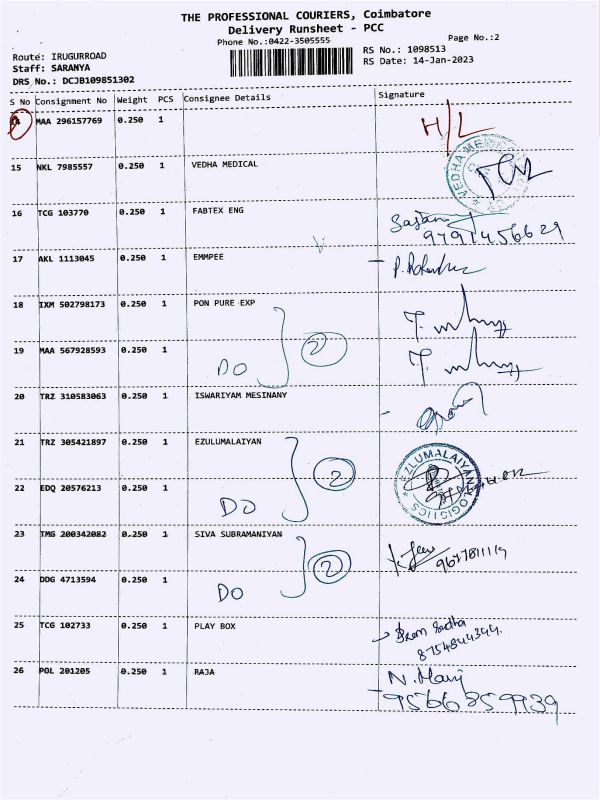 THE PROFESSIONAL COURIERS, Coimbatore
Delivery Runsheet - PCC
Phone No.:0422-3505555
Page No.:2
Route: IRUGURROAD
RS No.: 1098513
Staff: SARANYA
RS Date: 14-Jan-2023
DRS No.: DCJB109851302
S No Consignment No Weight PCS Consignee Details Signature
14 MAA 296157769 0.250 1 H/L
15 NKL 7985557 0.250 1 VEDHA MEDICAL
VEDHA MEDICAL
16 TCG 103770 0.250 1 FABTEX ENG
17 AKL 1113045 0.250 1 EMMPEE
18 IXM 502798173 0.250 1 PON PURE EXP
19 MAA 567928593 0.250 1 DO 2
20 TRZ 310583063 0.250 1 ISWARIYAM MESINANY
21 TRZ 305421897 0.250 1 EZULUMALAIYAN
EZLUMALAIYAN LOGISTICS
22 EDQ 20576213 0.250 1 DO 2
23 TMG 200342082 0.250 1 SIVA SUBRAMANIYAN
24 DDG 4713594 0.250 1 DO 2
25 TCG 102733 0.250 1 PLAY BOX
26 POL 201205 0.250 1 RAJA
9566859939